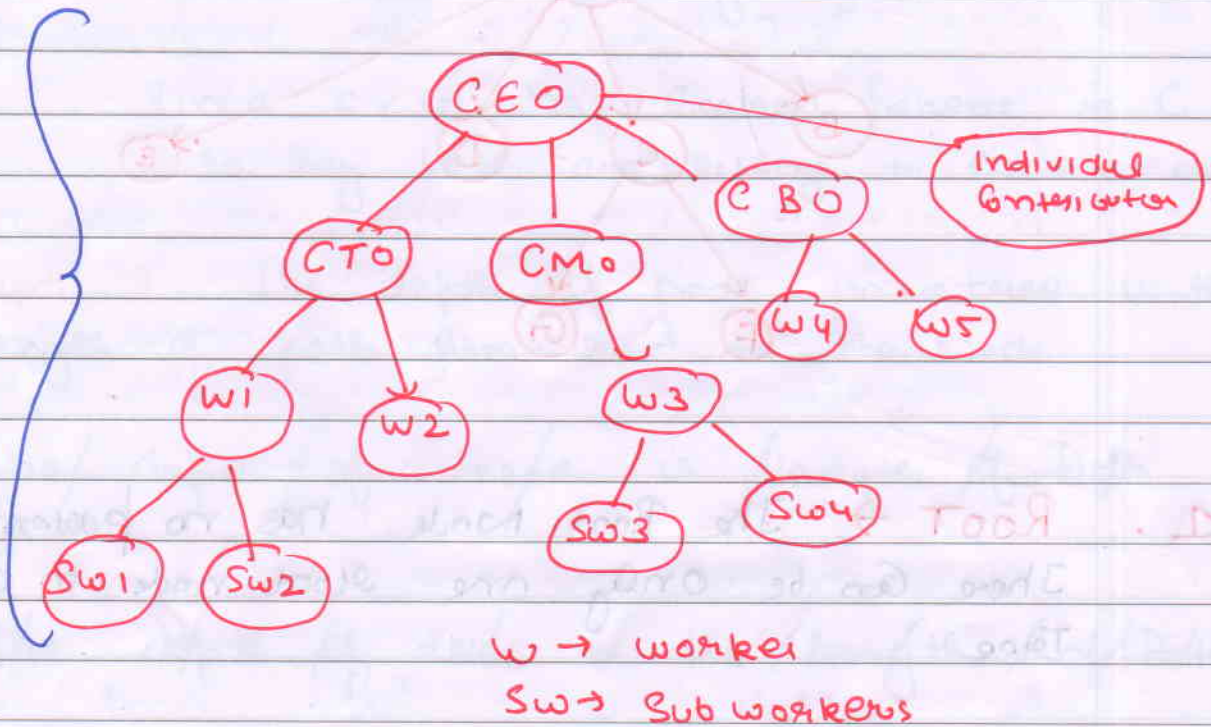 CEO
Individul
Contribution
CBO
CTO
CMO
W4
W5
W1
W2
W3
SW1
SW2
SW3
SW4
W → worker
SW → Sub workers